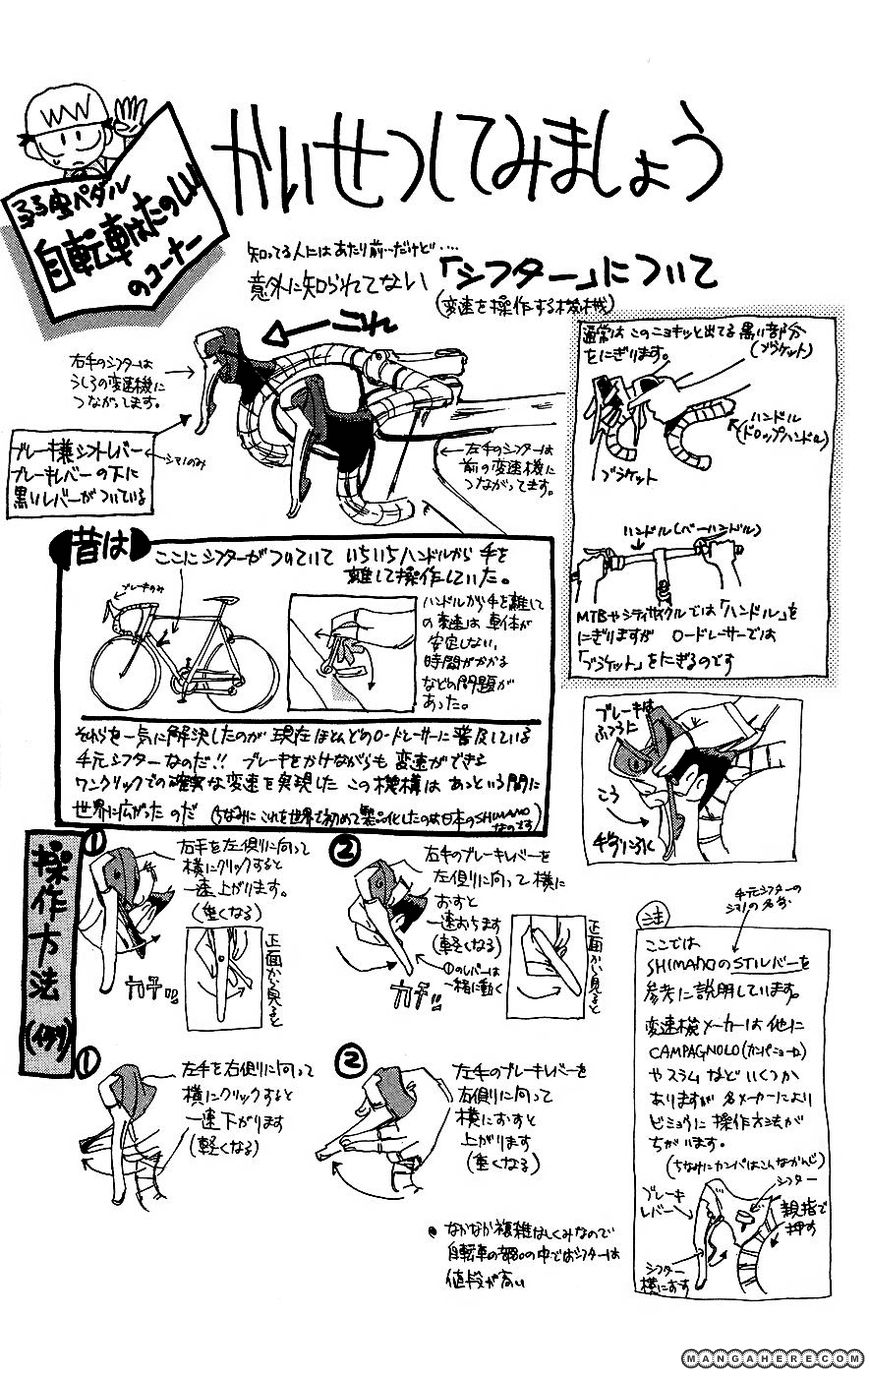 かいせつしてみましょう
弱虫ペダル
自転車はたのしい
のコーナー
知ってる人にはあたり前…だけど・・・・
意外に知られてない「シフター」について
(変速を操作する機械)
これ
右手のシフターは
うしろの変速機に
つながってます。
ブレーキ兼シフトレバー
ブレーキレバーの下に
黒いレバーがついている
シマノのみ
左手のシフターは
前の変速機に
つながってます。
通常はこのニョキッと出てる黒い部分
をにぎります。
(ブラケット)
ハンドル
(ドロップハンドル)
ブラケット
ハンドル(バーハンドル)
MTBやシティサイクルでは「ハンドル」を
にぎりますが ロードレーサーでは
「ブラケット」をにぎるのです
昔は
ここにシフターがついていて いちいちハンドルから手を
離して操作していた。
ブレーキのみ
ハンドルから手を離して
の変速は車体が
安定しない、
時間がかかる
などの問題が
あった。
それらを一気に解決したのが現在ほとんどのロードレーサーに普及している
手元シフターなのだ!! ブレーキをかけながらも変速ができる
ワンクリックでの確実な変速を実現したこの機構はあっという間に
世界に広がったのだ (ちなみにこれを世界で初めて製品化したのは日本のSHIMANO
なのです)
ブレーキは
ふつうに
こう
手前に引く
操作方法
①
右手を左側に向って
横にクリックすると
一速上がります。
(重くなる)
カチ!!
正面から見ると
②
右手のブレーキレバーを
左側に向って横に
おすと
一速おちます
(軽くなる)
①のレバーは
一緒に動く
カチ!!
正面から見ると
①
左手を右側に向って
横にクリックすると
一速下がります
(軽くなる)
②
左手のブレーキレバーを
右側に向って
横におすと
上がります
(重くなる)
●なかなか複雑なしくみなので
自転車の部品の中ではシフターは
値段が高い
注
手元シフターの
シマノの名称
ここでは
SHIMANOのSTIレバーを
参考に説明しています。
変速機メーカーは他に
CAMPAGNOLO(カンパニョーロ)
やスラムなどいくつか
ありますが各メーカーにより
ビミョウに操作方法が
ちがいます。
(ちなみにカンパはこんなかんじ)
ブレーキ
レバー
シフター
親指で
押す
シフター
横におす
MANGAHERE.COM